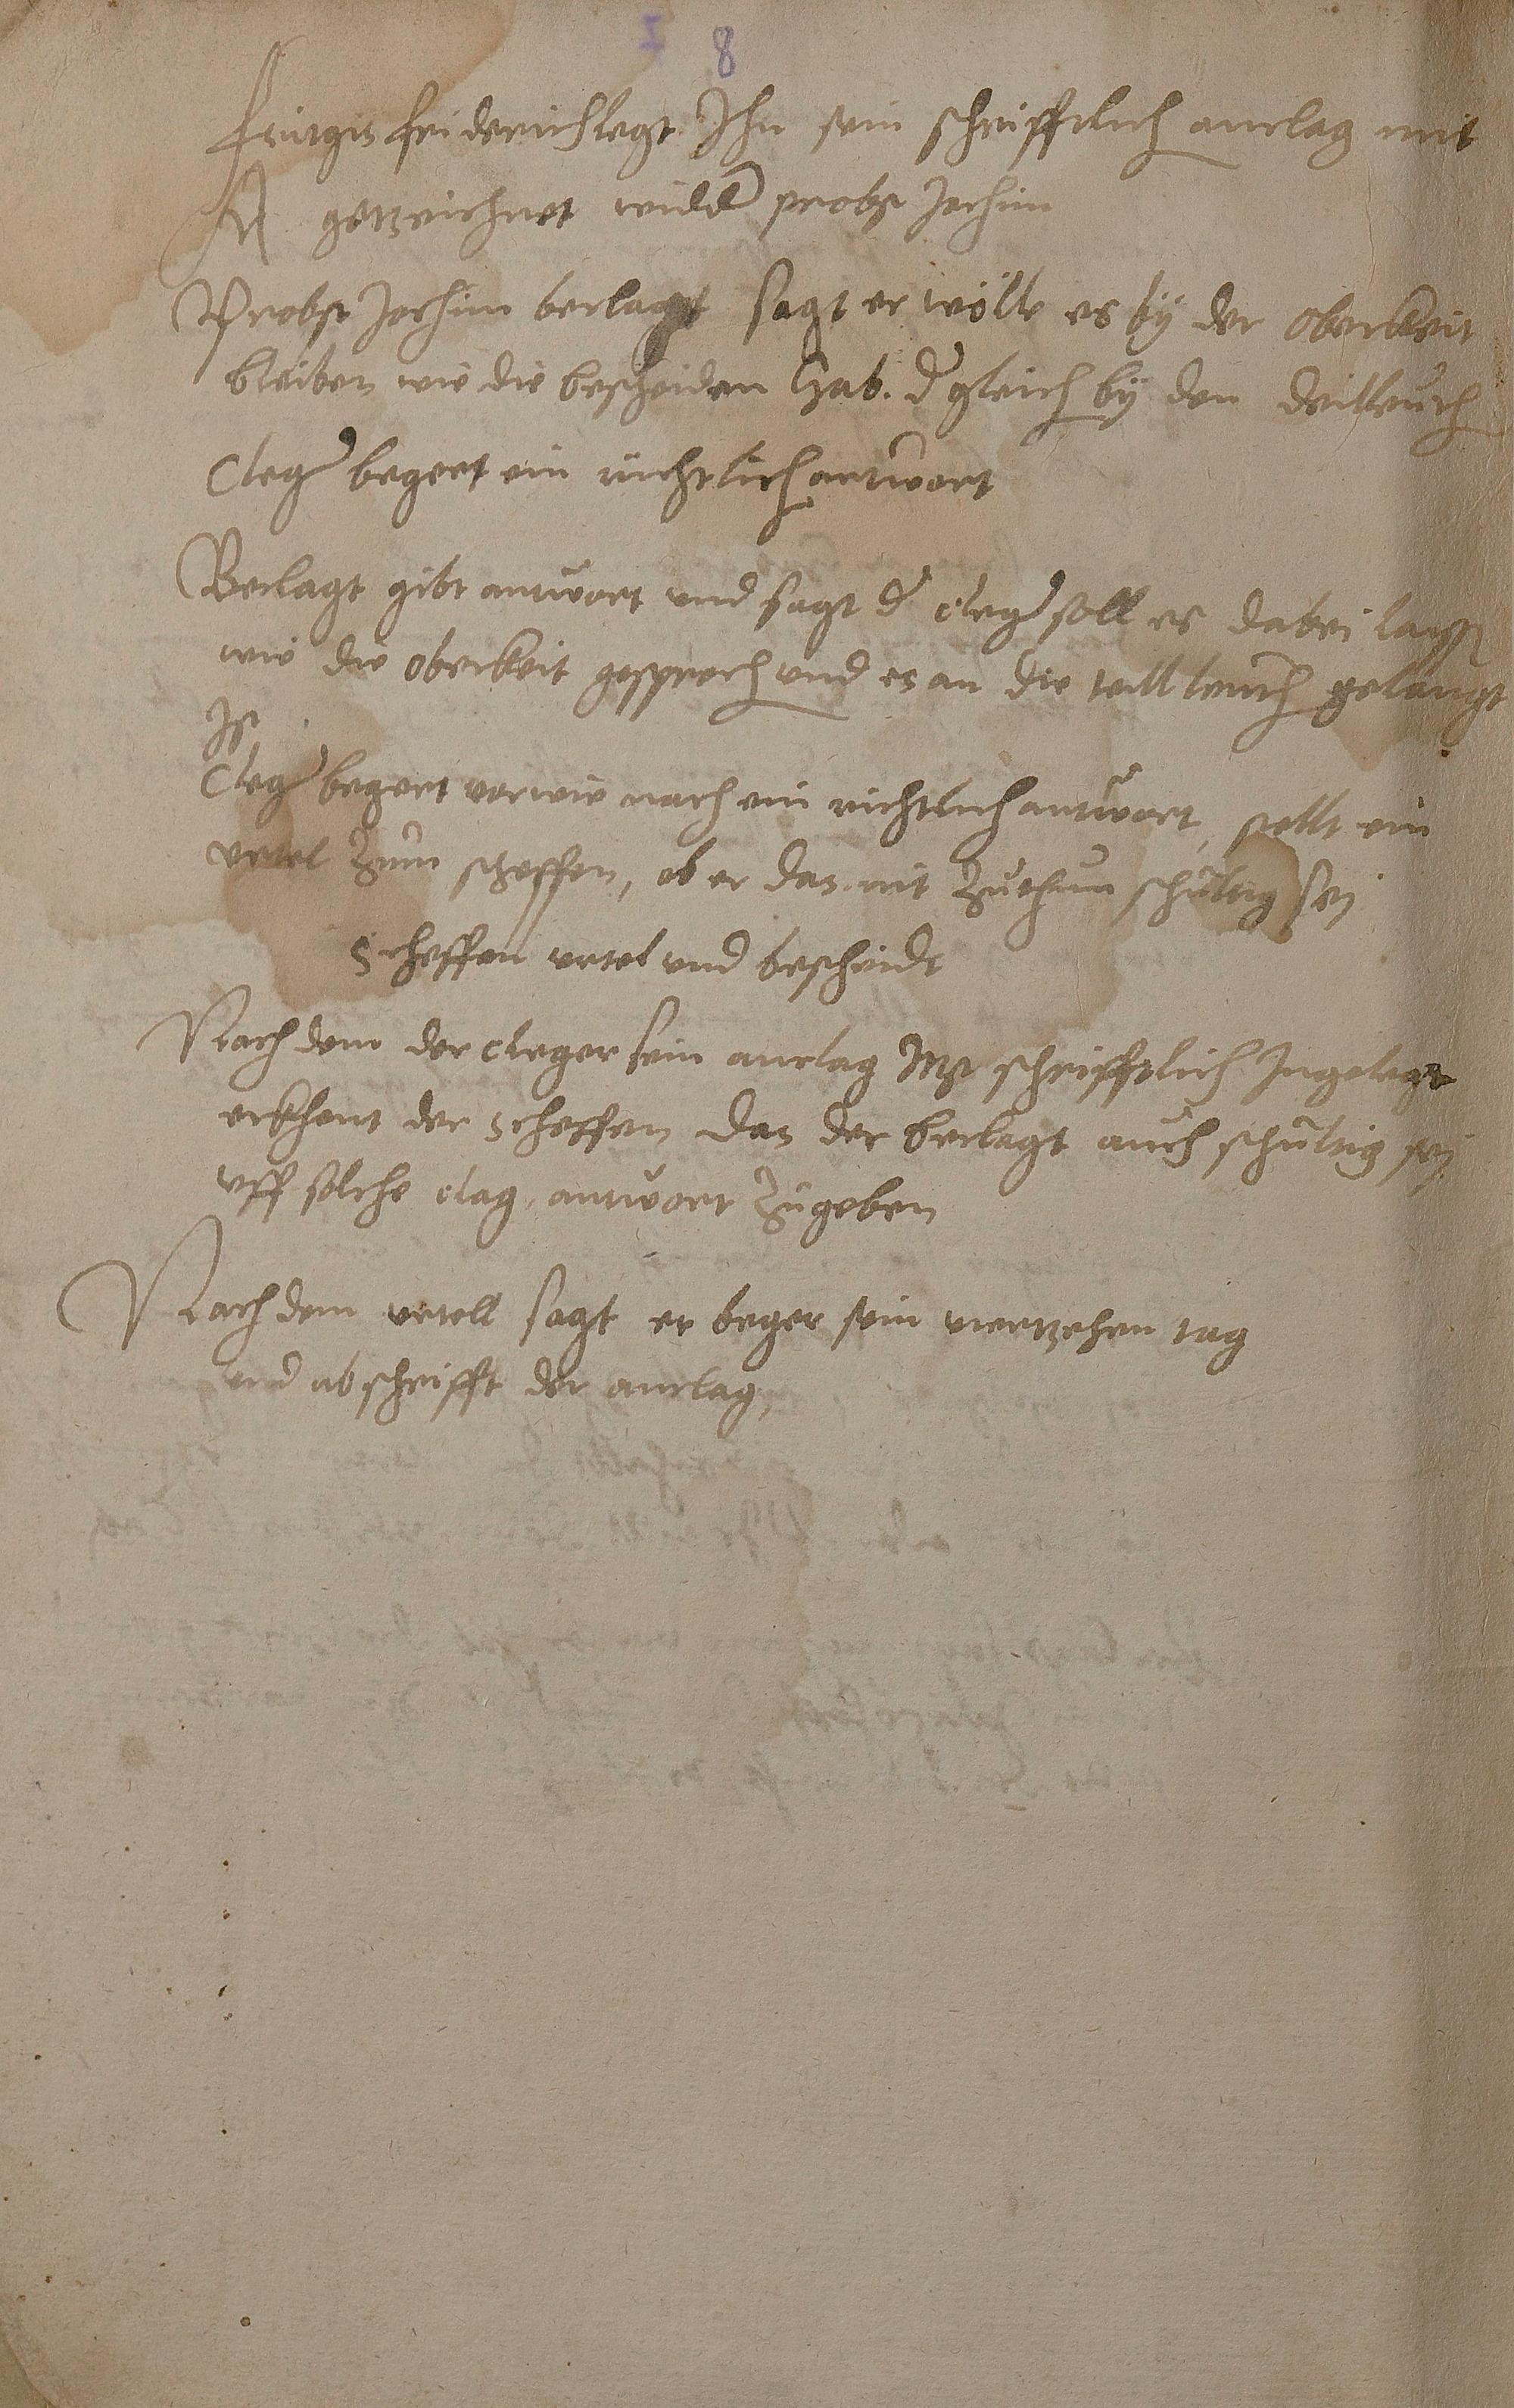 8
Friderich legt Ihn sein schrifftlich anclag mit
A getzeichnet widd(er) probst Jochim
Probst Jochim beclagt sagt er wölle es bÿ der Oberkeit
bleiben wie die bescheiden hab. d(er)gleich bÿ den deilleuth
Cleg(er) begert ein richtlich antwort
Beclagt gibt antwort und sagt d(er) cleg(er) soll es dabei lass(en)
wie die Oberkeit gesproch und es an die teilleuth gelangt
Ist
Cleg(er) begert vor wie nach ein richtlich antwort, stelt ein
urtel zum scheffen, ob er das nit zuthun schultig sej
Scheffen urtel und bescheidt
Nach dem der cleger sein anclag Itzt schrifftlich Ingelegt
erkhent der Scheffen das der beclagt auch schultig sej
uff solche clag antwort zugeben
Nach dem urtell sagt er beger sein viertzehen tag
und abschrifft der anclag,